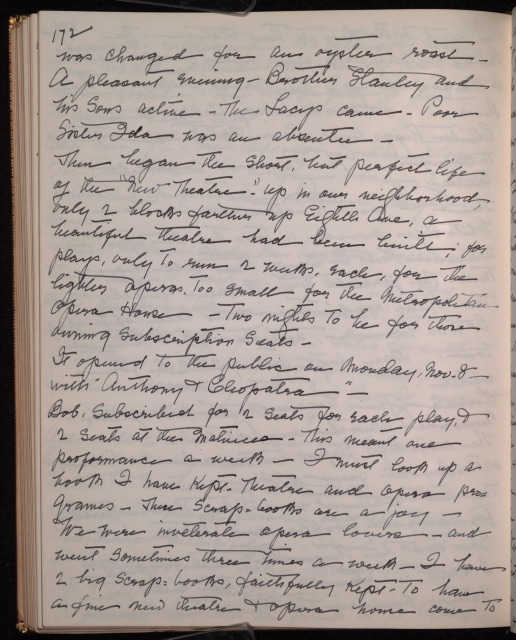 172
was changed for an oyster roast -
A pleasant evening - Brother Stanley and
his Sons active - The Lacys came - Poor
Sister Ida was an absentee -
Then began the short, but perfect life
of the "New Theatre." up in our neighborhood,
only 2 blocks farther up Eighth Ave, a
beautiful theatre had been built; for
plays, only to run 2 weeks, each, for the
lighter operas, too small for the Metropolitan
Opera House - Two nights to be for those
owning Subscription Seats -
It opened to the public on Monday, Nov. 8 -
with "Anthony & Cleopatra" -
Bob. Subscribed for 2 Seats for each play, &
2 Seats at the Matinees - This meant one
performance a week - I must look up a
book I have kept - Theatre and opera pro=
grames - These Scrap-books are a joy -
We were inveterate opera lovers - and
went Sometimes three times a week - I have
2 big Scrap-books, faithfully kept - To have
as fine new theatre & opera house come to